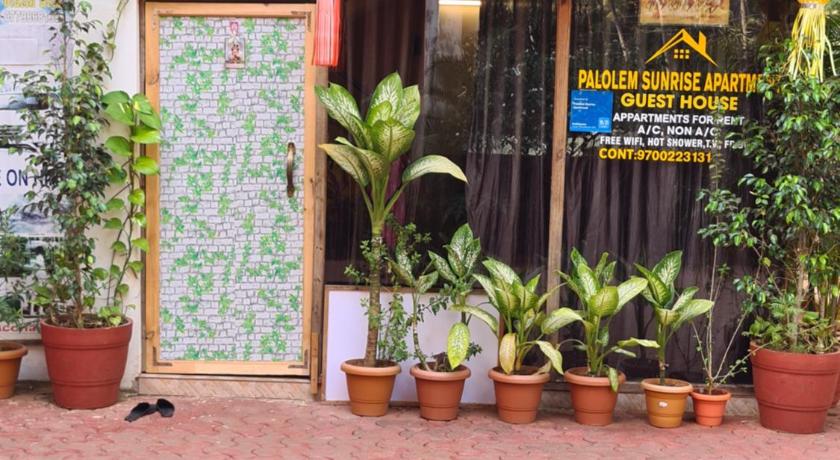 PALOLEM SUNRISE APARTM
GUEST HOUSE
APPARTMENTS FOR RENT
A/C, NON A/C
FREE WIFI, HOT SHOWER,T.V,
CONT:9700223131
ON